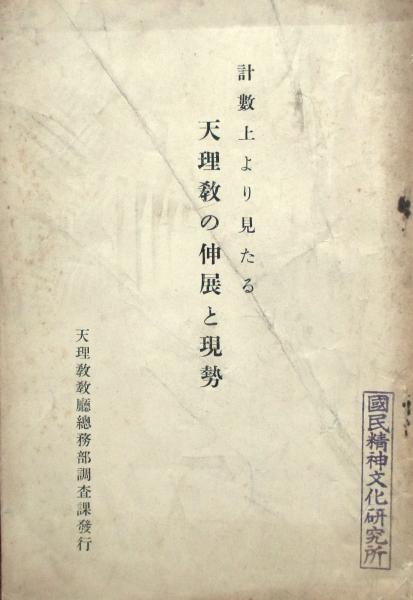 計數上より見たる
天理教の伸展と現勢
天理教教廳總務部調査課發行
國民精神文化研究所